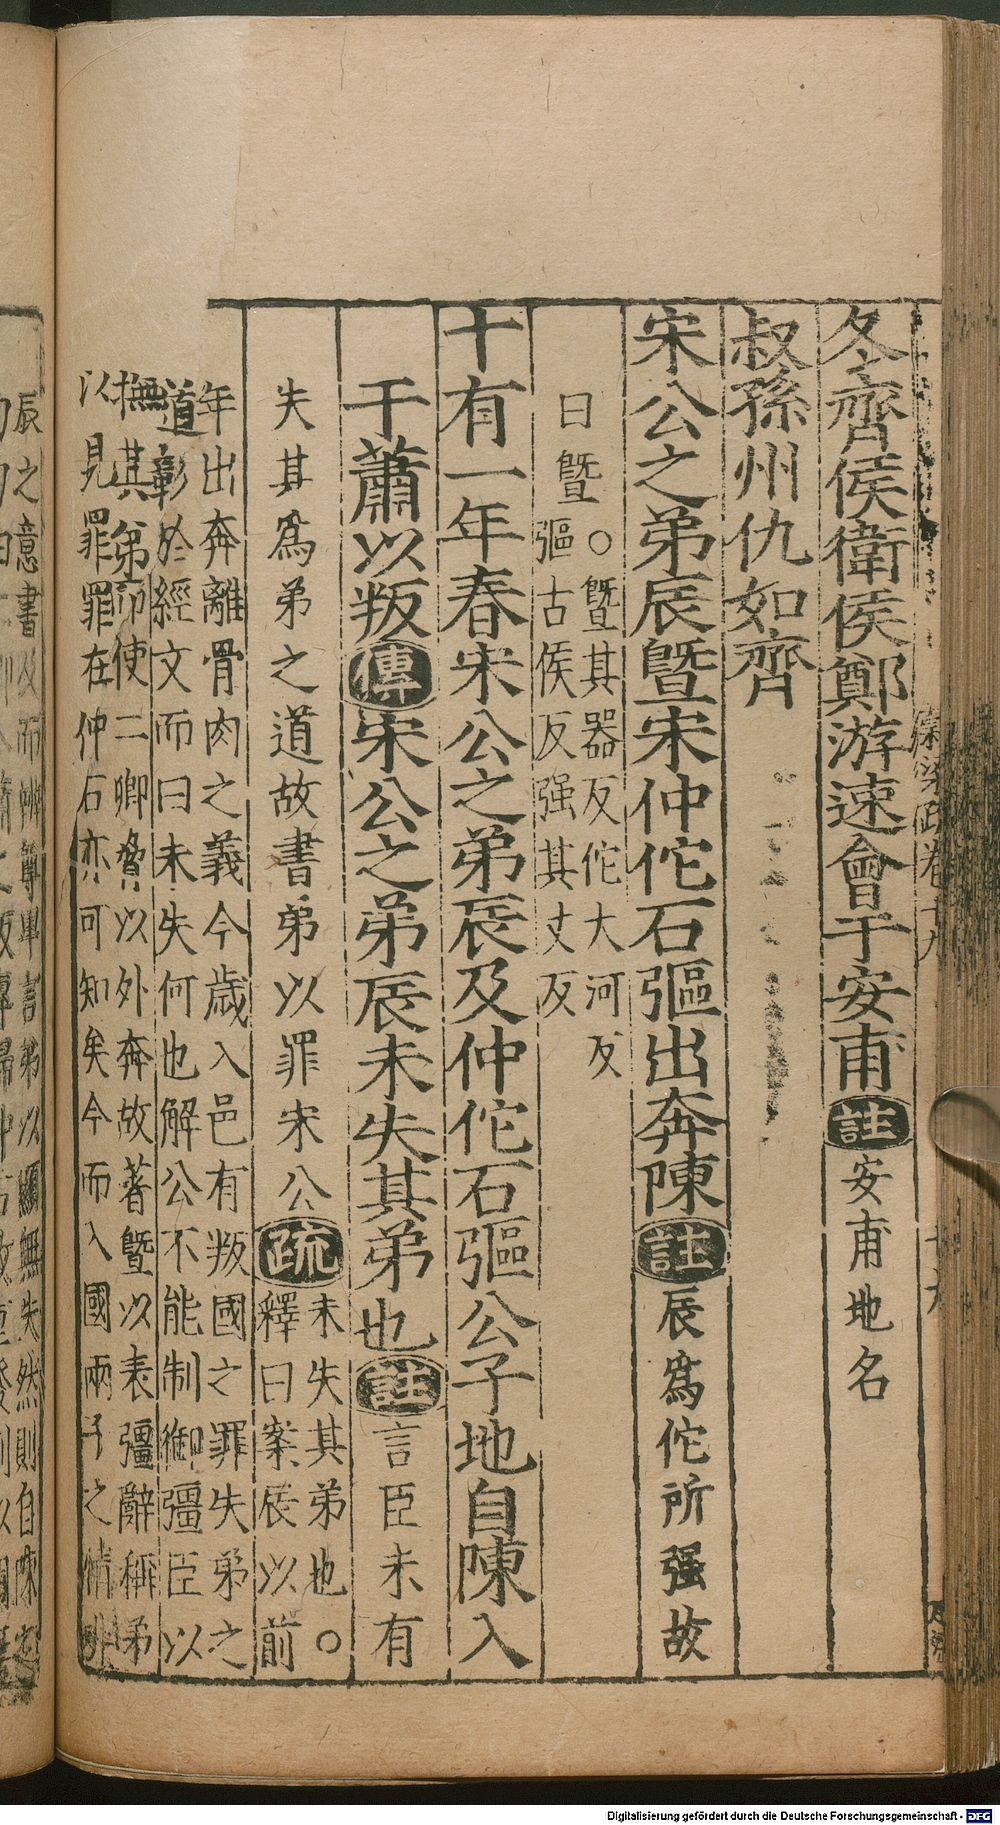 冬齊侯衛侯鄭游速會于安甫註安甫地名
叔孫州仇如齊
宋公之弟辰曁宋仲佗石彄出奔陳註辰爲佗所强故
曰曁○曁其器反佗大河反
彄古侯反强其丈反
十有一年春宋公之弟辰及仲佗石彄公子地自陳入
于蕭以叛傳宋公之弟辰未失其弟也註言臣未有
失其爲弟之道故書弟以罪宋公疏未失其弟也○
釋曰案辰以前
年出奔離骨肉之義今歲入邑有叛國之罪失弟之
道彰於經文而曰未失何也解公不能制御彊臣以
撫其弟而使二卿脅以外奔故著曁以表彊辭稱弟
以見罪罪在仲石亦可知矣今而入國兩子之情
辰之意書及而辨尊卑言弟以顯無失然則自陳
Digitalisierung gefördert durch die Deutsche Forschungsgemeinschaft - DFG